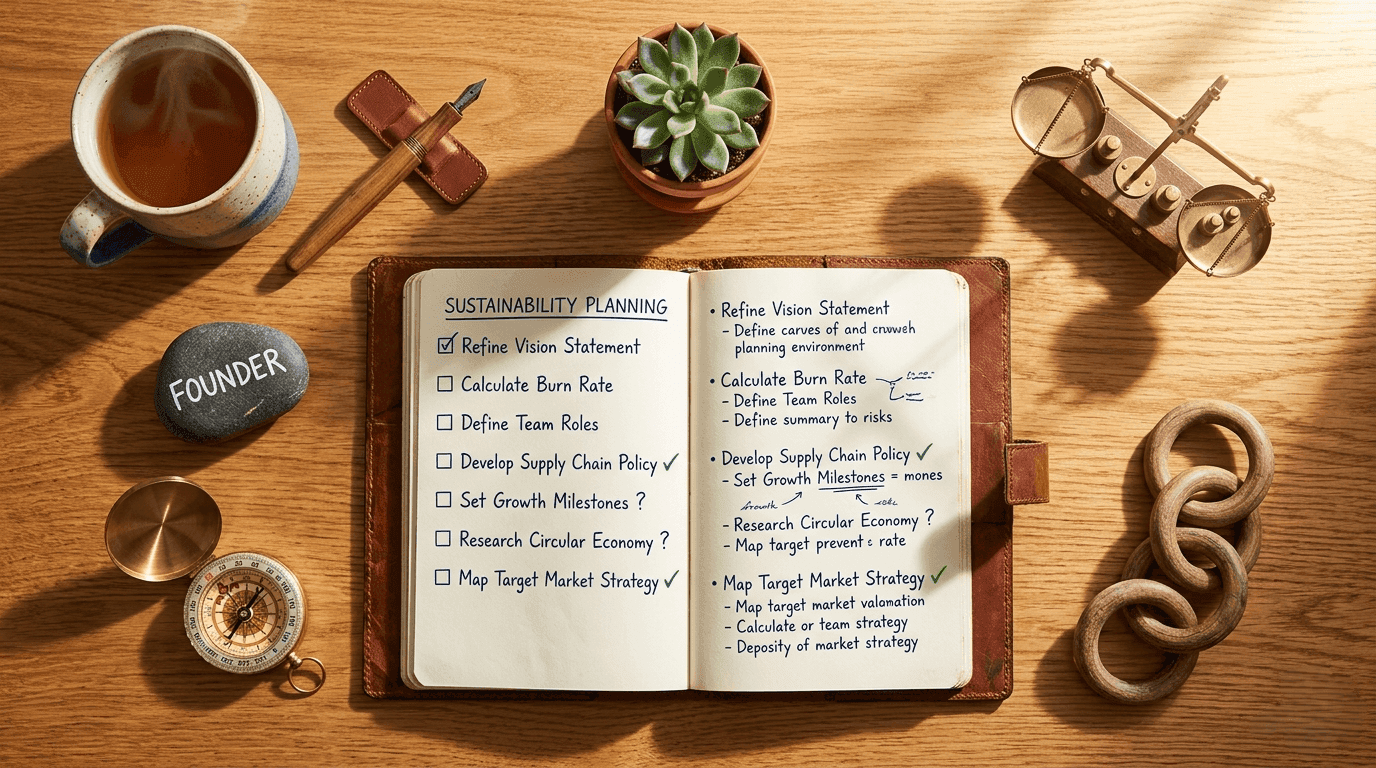 SUSTAINABILITY PLANNING
☑ Refine Vision Statement
☐ Calculate Burn Rate
☐ Define Team Roles
☐ Develop Supply Chain Policy ✓
☐ Set Growth Milestones ?
☐ Research Circular Economy ?
☐ Map Target Market Strategy ✓
• Refine Vision Statement
- Define carves of and
planning environment
• Calculate Burn Rate
- Define Team Roles
- Define summary to risks
• Develop Supply Chain Policy ✓
- Set Growth Milestones = mones
- Research Circular Economy ?
- Map target prevent : rate
• Map Target Market Strategy ✓
- Map target market
- Calculate or team strategy
- Deposity of market strategy
FOUNDER